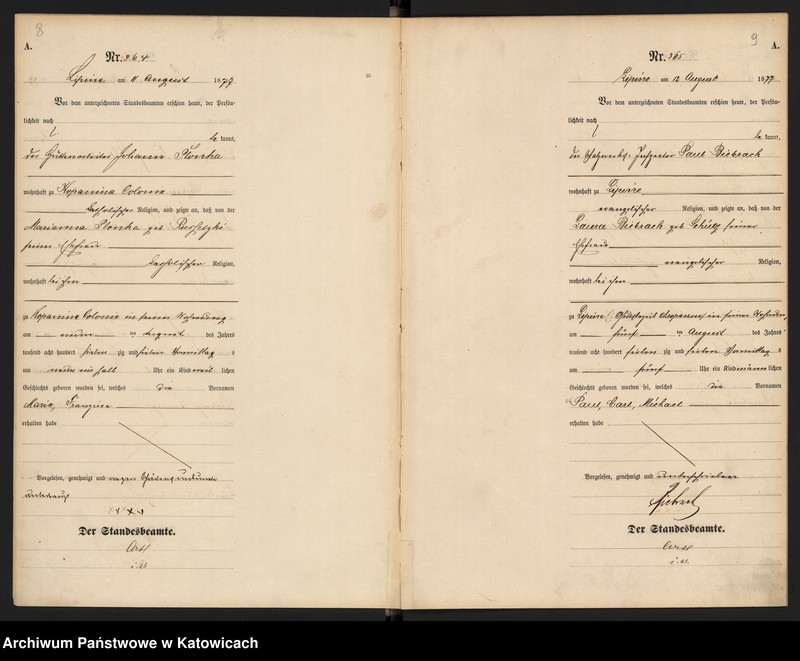 8
A.
Nr. 364
Lipine am 11 August 1877
Vor dem unterzeichneten Standesbeamten erschien heute, der Persön-
lichkeit nach
be kannt,
der Hüttenarbeiter Johann Slonka
wohnhaft zu Kopanina Colonie
katholischer Religion, und zeigte an, daß von der
Marianna Slonka geb.
seiner Ehefrau
katholischer Religion,
wohnhaft bei ihm
zu Kopanina Colonie in seiner Wohnung
am neun ten August des Jahres
tausend acht hundert sieben zig und sieben Vormittag s
um neun ein halb Uhr ein Kind weib lichen
Geschlechts geboren worden sei, welches die Vornamen
Marie, Franziska
erhalten habe
Vorgelesen, genehmigt und wegen Schreibensunkunde
unterkreuzt
+ + +
Der Standesbeamte.
9
A.
Nr. 365
Lipine am 12 August 1877
Vor dem unterzeichneten Standesbeamten erschien heute, der Persön-
lichkeit nach
be kannt,
der Inspector Paul Biebrach
wohnhaft zu Lipine
evangelischer Religion, und zeigte an, daß von der
Laura Biebrach geb. Schütz seiner
Ehefrau
evangelischer Religion,
wohnhaft bei ihm
zu Lipine in seiner Wohnung
am fünf ten August des Jahres
tausend acht hundert sieben zig und sieben Vormittag s
um fünf Uhr ein Kind männ lichen
Geschlechts geboren worden sei, welches die Vornamen
Paul, Carl, Michael
erhalten habe
Vorgelesen, genehmigt und unterschrieben
Biebrach
Der Standesbeamte.
Archiwum Państwowe w Katowicach